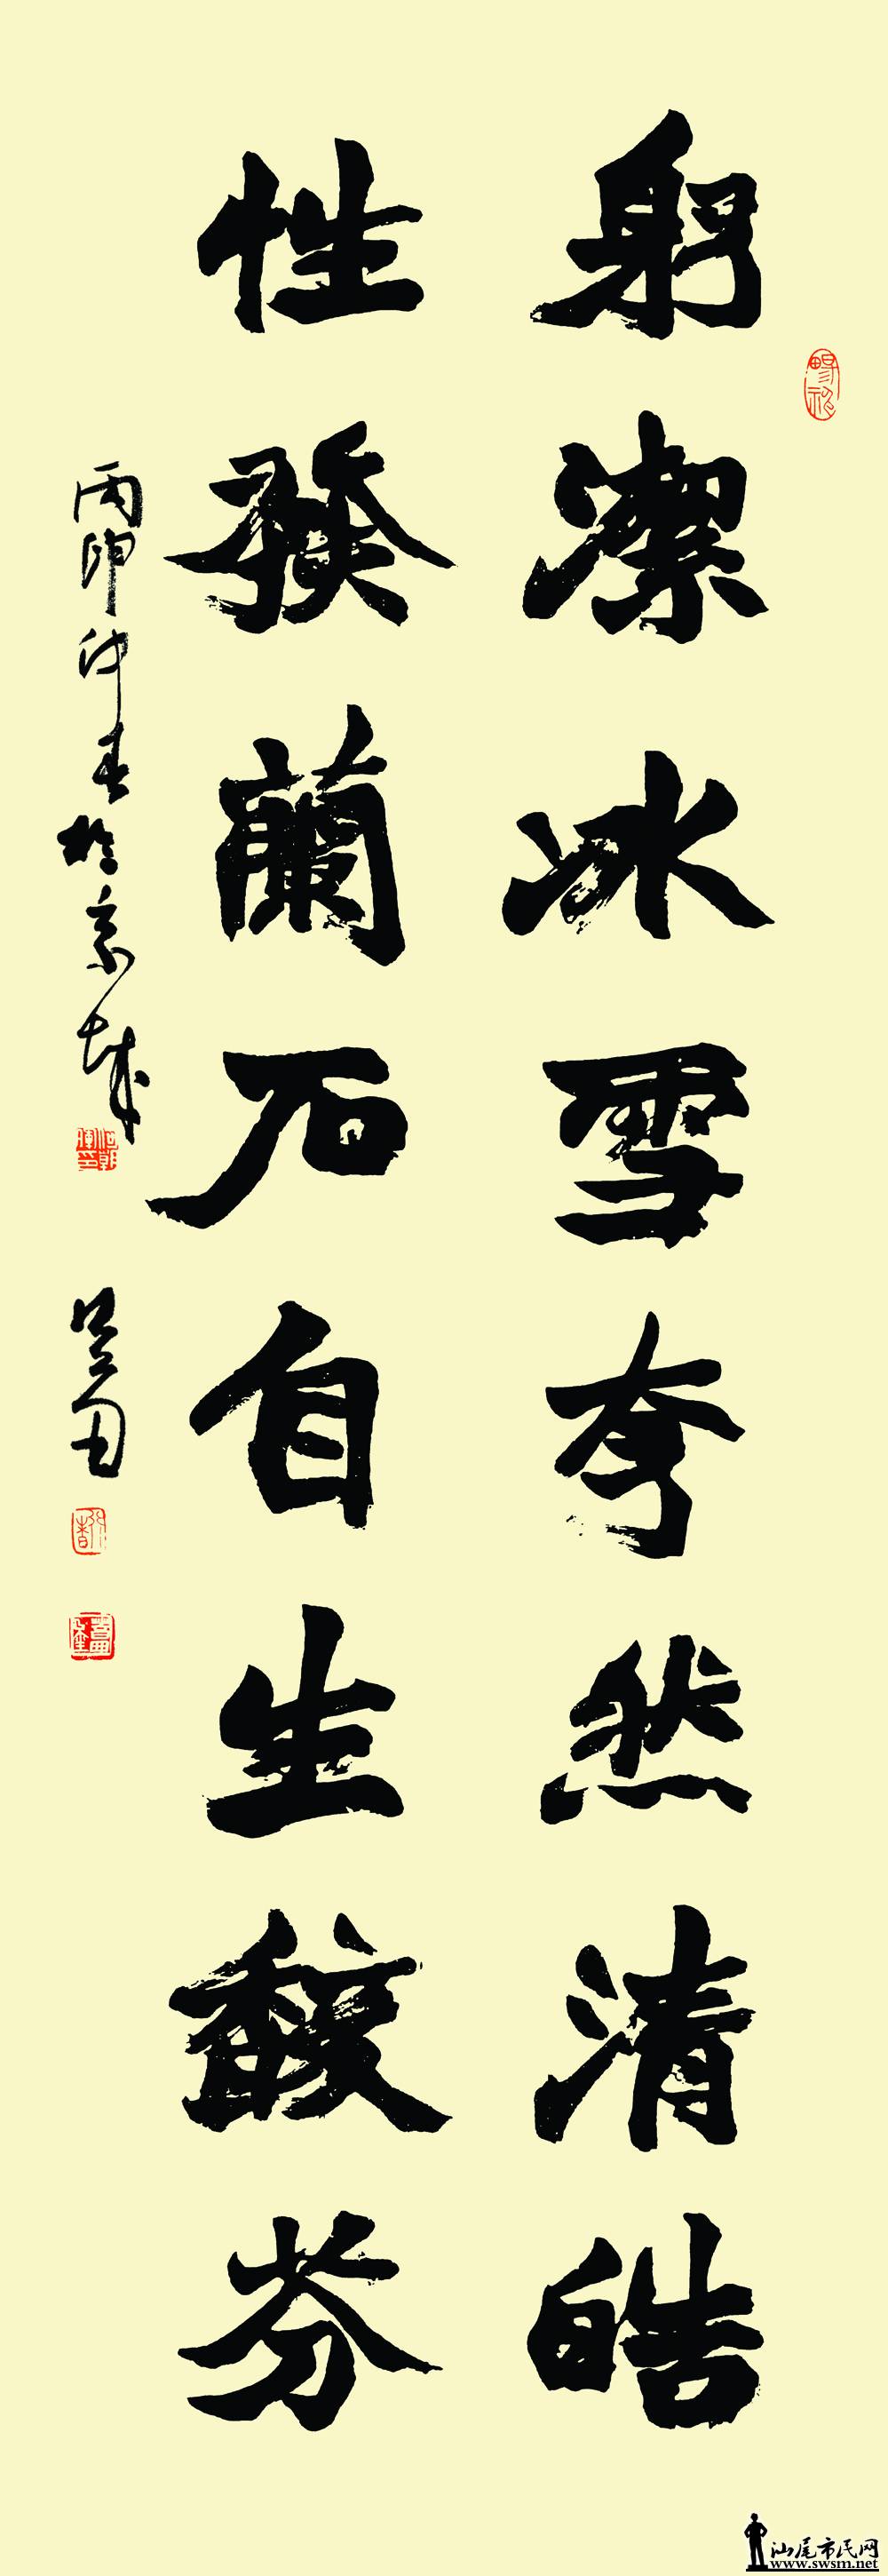 躬潔冰雪夸然清皓
性發蘭石自生馥芬
丙申仲春於京城
汕尾市民网
www.swsm.net